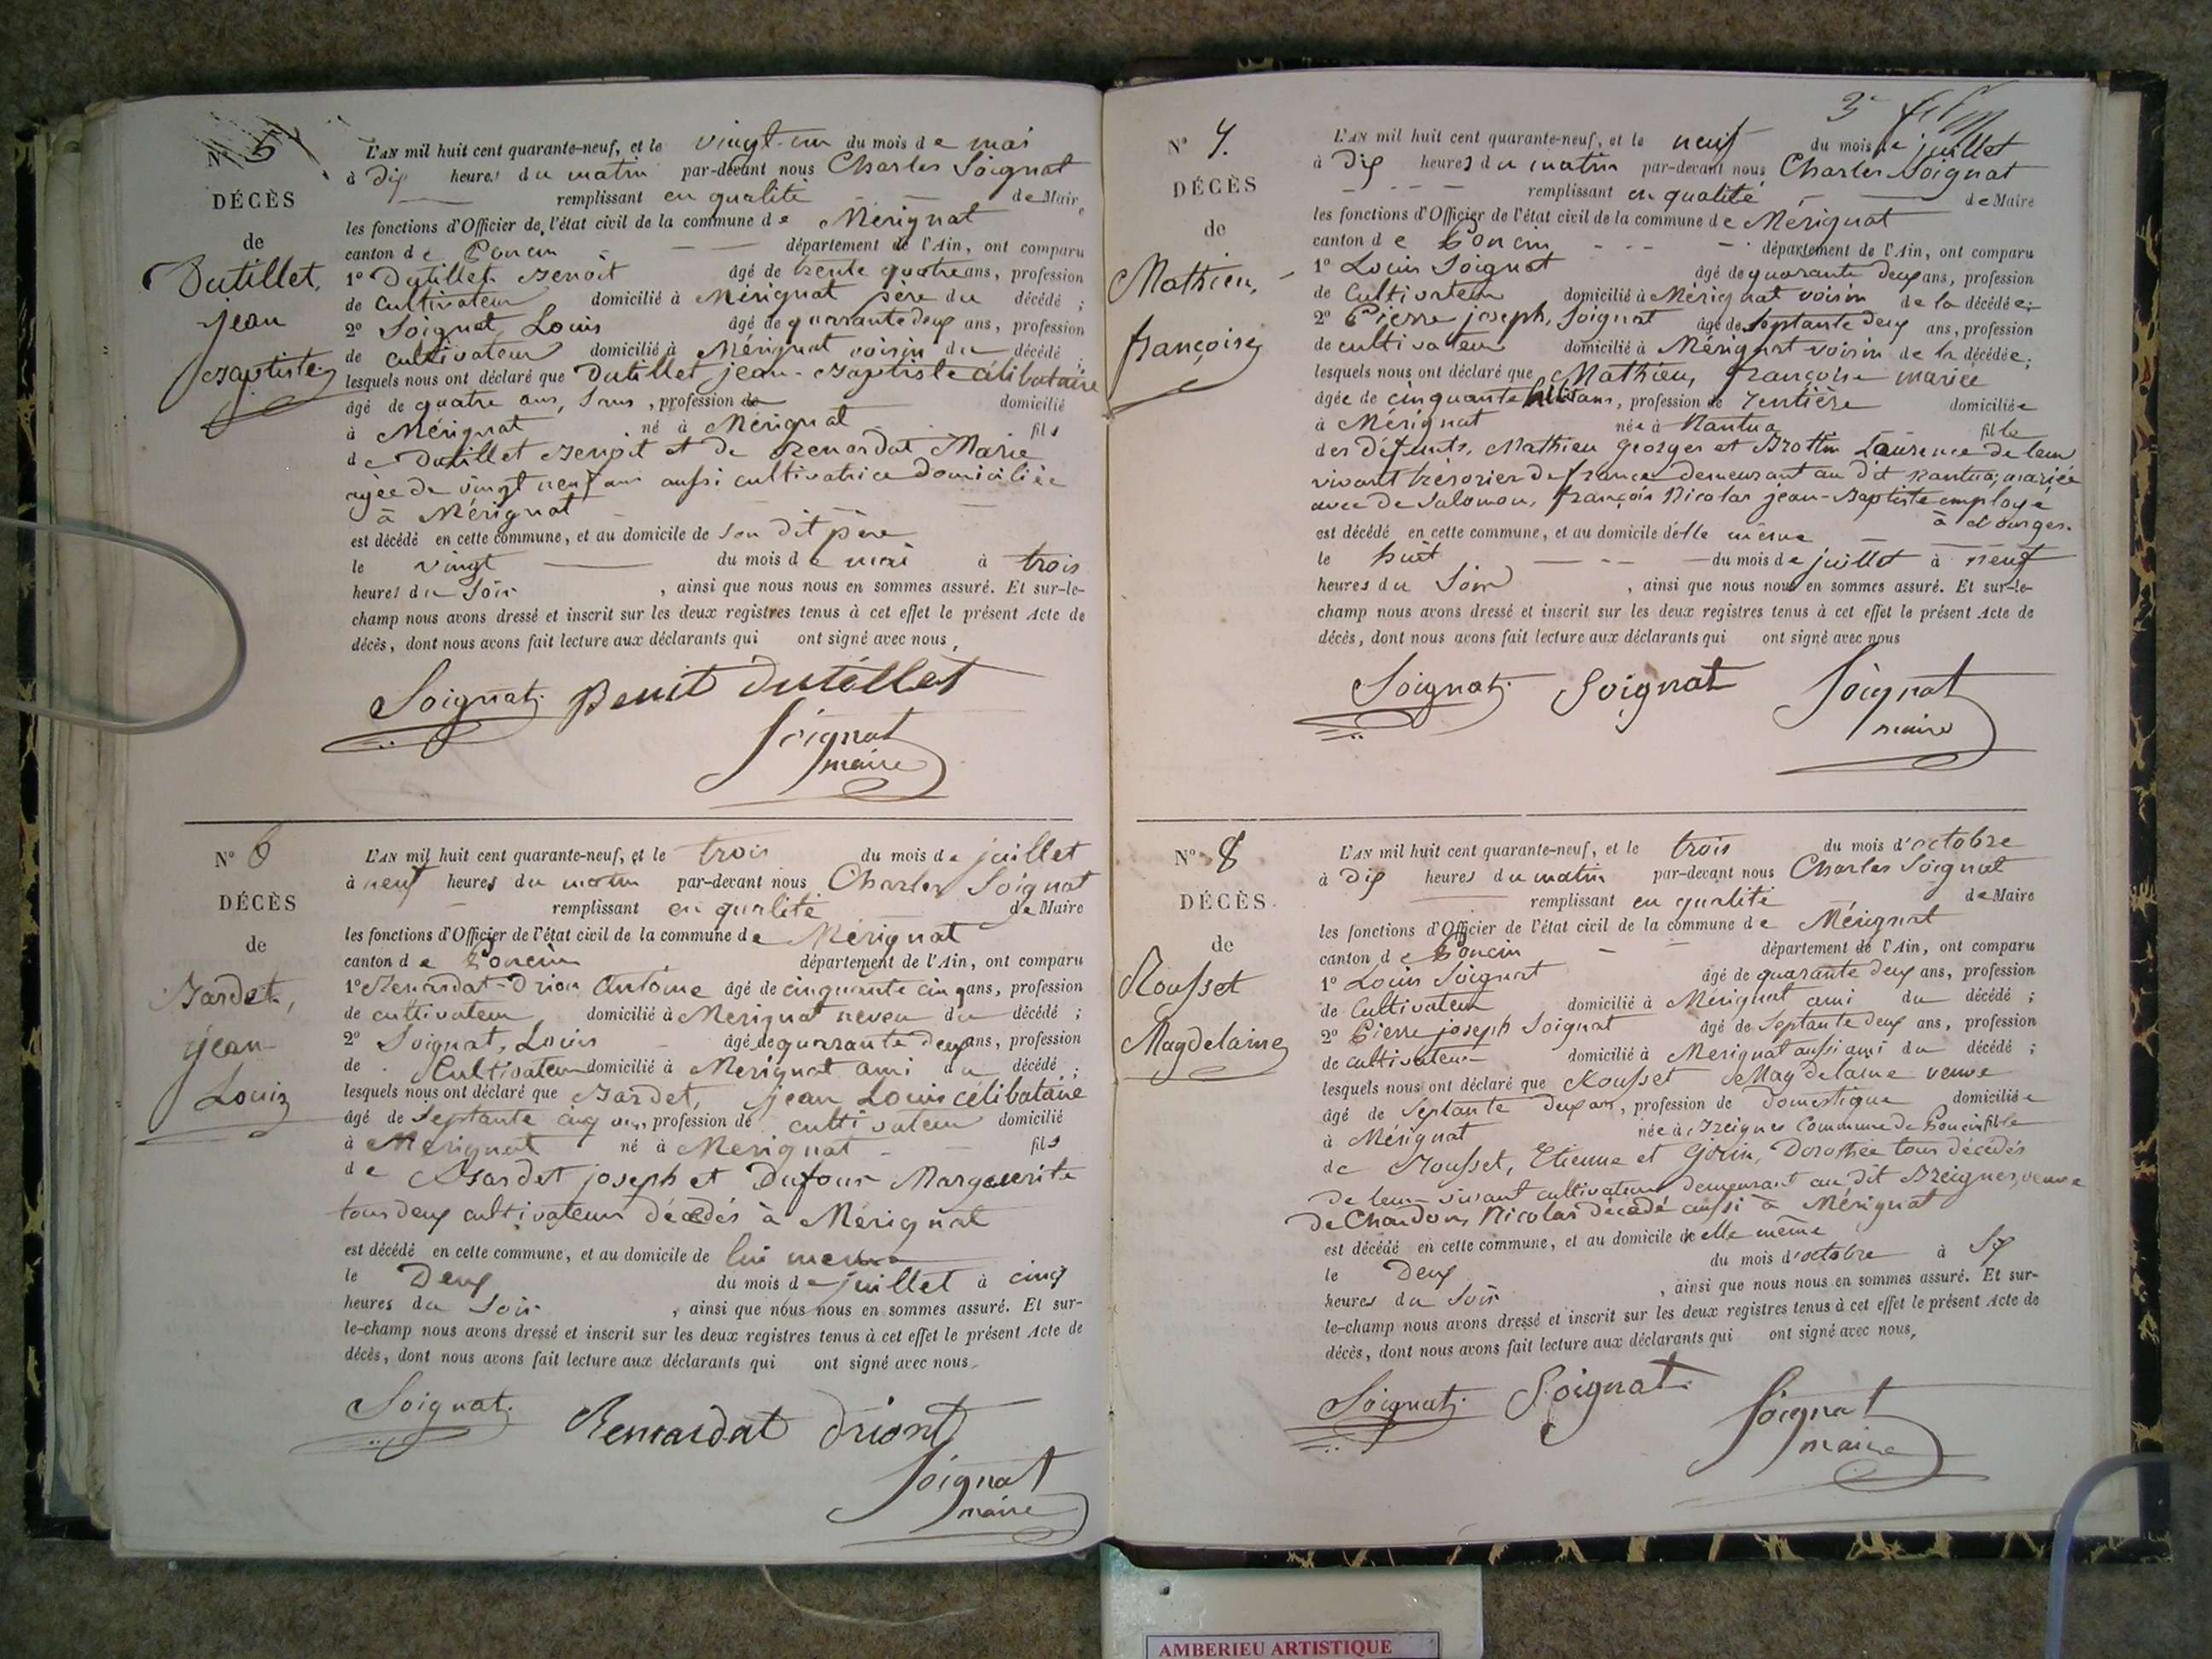 N° 5
DÉCÈS
de
Dutillet,
jean
Baptiste
L'AN mil huit cent quarante-neuf, et le vingt-un du mois de mai
à dix heures du matin par-devant nous Charles Soignat
remplissant en qualité de Maire
les fonctions d'Officier de l'état civil de la commune de Mérignat
canton de Poncin département de l'Ain, ont comparu
1° Dutillet Benoît âgé de trente quatre ans, profession
de cultivateur domicilié à Mérignat père du décédé ;
2° Soignat, Louis âgé de quarante deux ans, profession
de cultivateur domicilié à Mérignat voisin du décédé ;
lesquels nous ont déclaré que Dutillet jean-Baptiste célibataire
âgé de quatre ans, sans, profession de domicilié
à Mérignat né à Mérignat fils
de Dutillet Benoit et de Renardat Marie
agée de vingt neuf ans aussi cultivatrice domiciliée
à Mérignat
est décédé en cette commune, et au domicile de son dit père
le vingt du mois de mai à trois
heures du soir, ainsi que nous nous en sommes assuré. Et sur-le-
champ nous avons dressé et inscrit sur les deux registres tenus à cet effet le présent Acte de
décès, dont nous avons fait lecture aux déclarants qui ont signé avec nous,
Soignat. Benoit Dutillet
Soignat
maire
N° 6
DÉCÈS
de
Bardet,
jean
Louis
L'AN mil huit cent quarante-neuf, et le trois du mois de juillet
à neuf heures du matin par-devant nous Charles Soignat
remplissant en qualité de Maire
les fonctions d'Officier de l'état civil de la commune de Mérignat
canton de Poncin département de l'Ain, ont comparu
1° Renardat-Drion Antoine âgé de cinquante cinq ans, profession
de cultivateur domicilié à Mérignat neveu du décédé ;
2° Soignat, Louis âgé de quarante deux ans, profession
de Cultivateur domicilié à Mérignat ami du décédé ;
lesquels nous ont déclaré que Bardet, jean Louis célibataire
âgé de septante cinq ans, profession de cultivateur domicilié
à Mérignat né à Mérignat fils
de Bardet joseph et Dufour Marguerite
tous deux cultivateurs décédés à Mérignat
est décédé en cette commune, et au domicile de lui meme
le Deux du mois de juillet à cinq
heures du Soir, ainsi que nous nous en sommes assuré. Et sur-
le-champ nous avons dressé et inscrit sur les deux registres tenus à cet effet le présent Acte de
décès, dont nous avons fait lecture aux déclarants qui ont signé avec nous.
Soignat. Renardat Driont
Soignat
maire
N° 7.
DÉCÈS
de
Mathieu,
françoise
L'AN mil huit cent quarante-neuf, et le neuf du mois de juillet
à Dix heures du matin par-devant nous Charles Soignat
remplissant en qualité de Maire
les fonctions d'Officier de l'état civil de la commune de Mérignat
canton de Poncin département de l'Ain, ont comparu
1° Louis Soignat âgé de quarante deux ans, profession
de Cultivateur domicilié à Mérignat voisin de la décédée ;
2° Pierre joseph, Soignat âgé de Septante deux ans, profession
de cultivateur domicilié à Mérignat voisin de la décédée ;
lesquels nous ont déclaré que Mathieu, françoise mariée
âgée de cinquante huit ans, profession de rentière domiciliée
à Mérignat née à Nantua fille
des défunts, Mathieu Georges et Brottin Laurence de leur
vivant trésorier de france demeurant au dit Nantua, mariée
avec de Salomon, françois Nicolas jean-Baptiste employé
est décédé en cette commune, et au domicile d'elle même
le huit du mois de juillet à neuf
heures du Soir, ainsi que nous nous en sommes assuré. Et sur-le-
champ nous avons dressé et inscrit sur les deux registres tenus à cet effet le présent Acte de
décès, dont nous avons fait lecture aux déclarants qui ont signé avec nous
Soignat. Soignat Soignat
maire
N° 8
DÉCÈS.
de
Rousset
Magdelaine
L'AN mil huit cent quarante-neuf, et le trois du mois d'octobre
à Dix heures du matin par-devant nous Charles Soignat
remplissant en qualité de Maire
les fonctions d'Officier de l'état civil de la commune de Mérignat
canton de Poncin département de l'Ain, ont comparu
1° Louis Soignat âgé de quarante deux ans, profession
de Cultivateur domicilié à Mérignat ami du décédé ;
2° Pierre joseph Soignat âgé de Septante deux ans, profession
de cultivateur domicilié à Mérignat aussi ami du décédé ;
lesquels nous ont déclaré que Rousset Magdelaine veuve
âgé de Septante deux ans, profession de Domestique domiciliée
à Mérignat née à Breignes Commune de Poncin fille
de Rousset, Etienne et Gorin, Dorothée tous décédés
de leur vivant cultivateurs demeurant au dit Breignes, veuve
de Chardon, Nicolas décédé aussi à Mérignat
est décédé en cette commune, et au domicile de elle même
le Deux du mois d'octobre à Six
heures du Soir, ainsi que nous nous en sommes assuré. Et sur-
le-champ nous avons dressé et inscrit sur les deux registres tenus à cet effet le présent Acte de
décès, dont nous avons fait lecture aux déclarants qui ont signé avec nous,
Soignat. Soignat. Soignat
maire
AMBERIEU ARTISTIQUE